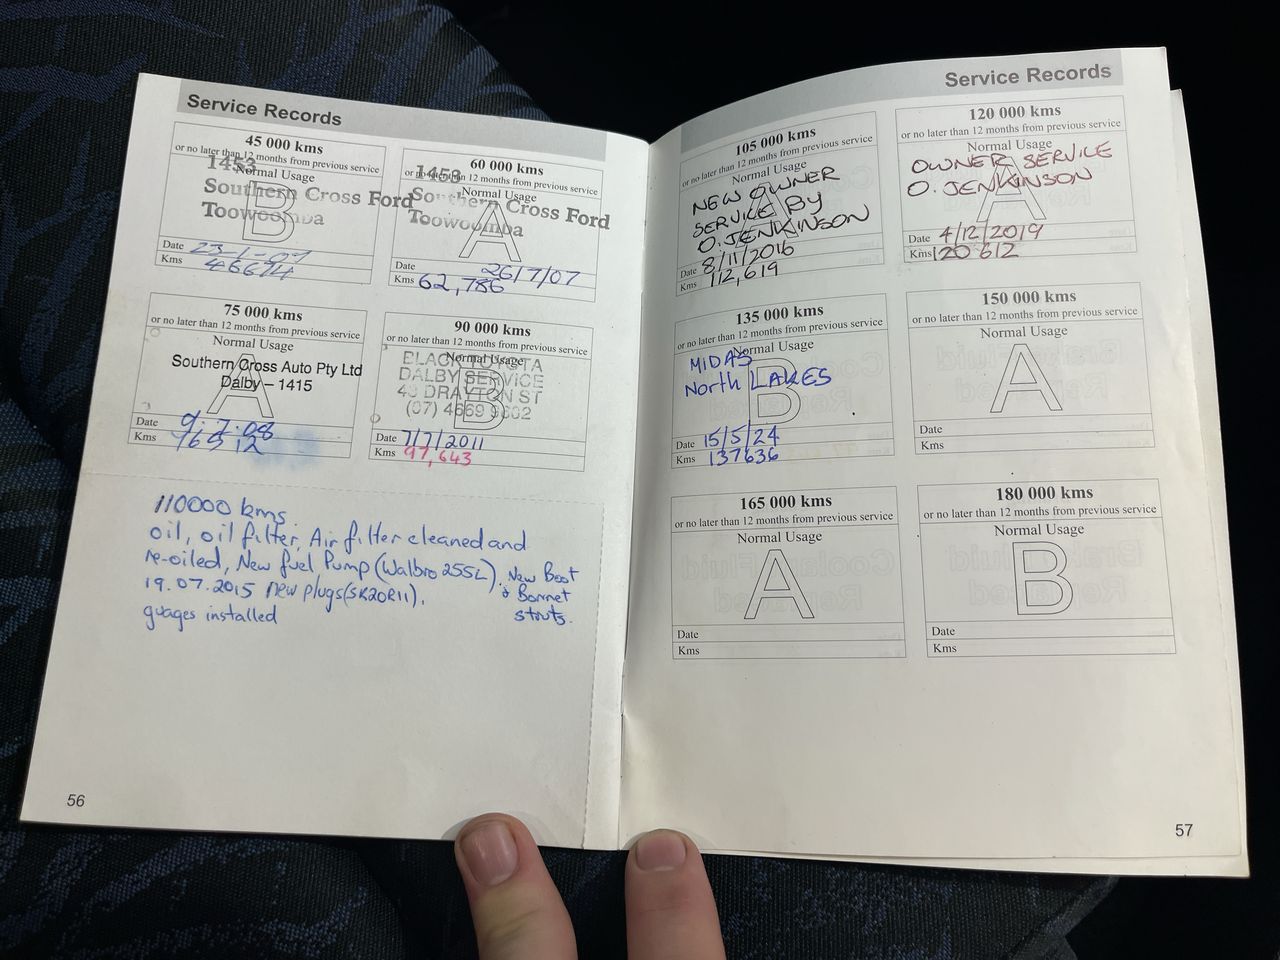 Service Records
45 000 kms
or no later than 12 months from previous service
Normal Usage
1453
Southern Cross Ford
Toowoomba
B
Date 23-1-07
Kms 46674
60 000 kms
or no later than 12 months from previous service
Normal Usage
1453
Southern Cross Ford
Toowoomba
A
Date 26/7/07
Kms 62,786
75 000 kms
or no later than 12 months from previous service
Normal Usage
Southern Cross Auto Pty Ltd
Dalby – 1415
A
Date 9.7.08
Kms 76512
90 000 kms
or no later than 12 months from previous service
Normal Usage
DALBY SERVICE
DRAYTON ST
(07) 4669
B
Date 7/7/2011
Kms 97,643
110000 kms
oil, oil filter, Air filter cleaned and
re-oiled, New fuel Pump (Walbro 255L). New Boot
19.07.2015 new plugs (SK20R11). & Bonnet
guages installed struts.
56
Service Records
105 000 kms
or no later than 12 months from previous service
Normal Usage
NEW OWNER
SERVICE BY
O. JENKINSON
A
Date 8/11/2016
Kms 112,619
120 000 kms
or no later than 12 months from previous service
Normal Usage
OWNER SERVICE
O. JENKINSON
A
Date 4/12/2019
Kms 120 612
135 000 kms
or no later than 12 months from previous service
Normal Usage
MIDAS
North LAKES
B
Date 15/5/24
Kms 137636
150 000 kms
or no later than 12 months from previous service
Normal Usage
A
Date
Kms
165 000 kms
or no later than 12 months from previous service
Normal Usage
A
Date
Kms
180 000 kms
or no later than 12 months from previous service
Normal Usage
B
Date
Kms
57